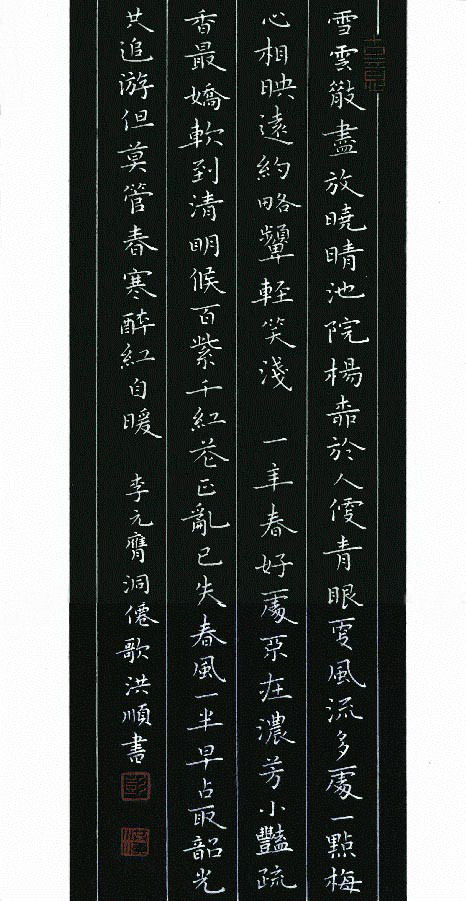 雪雲散盡放曉晴池院楊桺於人便青眼更風流多處一點梅
心相映遠約略顰輕笑淺 一年春好處不在濃芳小豔疏
香最嬌軟到清明候百紫千紅花正亂已失春風一半早占取韶光
共追游但莫管春寒醉紅自暖 李元膺洞僊歌洪順書
彭